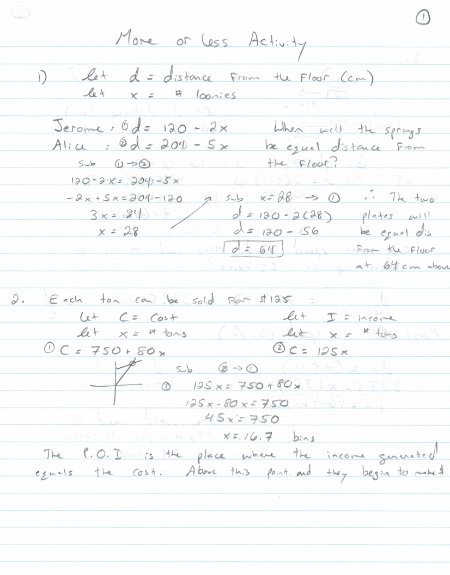 1
More or Less Activity
1) let d = distance from the floor (cm)
let x = # loonies
Jerome: ① d = 120 - 2x When will the springs
Alice: ② d = 204 - 5x be equal distance from
sub ① → ② the floor?
120 - 2x = 204 - 5x
-2x + 5x = 204 - 120 sub x = 28 → ① ∴ The two
3x = 84 d = 120 - 2(28) plates will
x = 28 d = 120 - 56 be equal dis
d = 64 from the floor
at 64 cm above
2. Each ton can be sold for $125
let C = cost let I = income
let x = # tons let x = # tons
① C = 750 + 80x ② C = 125x
sub ② → ①
① 125x = 750 + 80x
125x - 80x = 750
45x = 750
x = 16.7 bins
The P.O.I is the place where the income generated
equals the cost. Above this point and they begin to make $